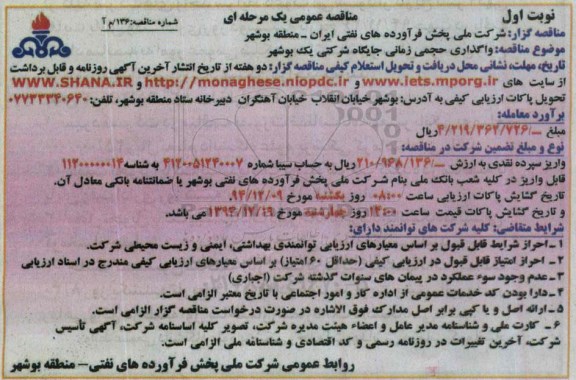 نوبت اول
مناقصه عمومی یک مرحله ای
شماره مناقصه: ۱۳۶/م آ
مناقصه گزار: شرکت ملی پخش فرآورده های نفتی ایران - منطقه بوشهر
موضوع مناقصه: واگذاری حجمی زمانی جایگاه شرکتی یک بوشهر
تاریخ، مهلت، نشانی محل دریافت و تحویل استعلام کیفی مناقصه گزار: دو هفته از تاریخ انتشار آخرین آگهی روزنامه و قابل برداشت
از سایت های www.iets.mporg.ir و http://monaghese.niopdc.ir و WWW.SHANA.IR
تحویل پاکات ارزیابی کیفی به آدرس: بوشهر خیابان انقلاب خیابان آهنگران دبیرخانه ستاد منطقه بوشهر، تلفن: ۰۷۷۳۳۳۴۰۶۴۰
برآورد معامله:
مبلغ ــ/۴/۲۱۹/۳۶۲/۷۲۶ ریال
نوع و مبلغ تضمین شرکت در مناقصه:
واریز سپرده نقدی به ارزش ــ/۲۱۰/۹۶۸/۱۳۶ ریال به حساب سیبا شماره ۴۱۲۰۰۵۱۲۴۰۰۰۷ به شناسه ۱۱۲۰۰۰۰۰۰۱۴
قابل واریز در کلیه شعب بانک ملی بنام شرکت ملی پخش فرآورده های نفتی بوشهر یا ضمانتنامه بانکی معادل آن.
تاریخ گشایش پاکات ارزیابی ساعت ۰۸:۰۰ روز یکشنبه مورخ ۹۴/۱۲/۰۹
و تاریخ گشایش پاکات قیمت ساعت روز چهارشنبه مورخ ۱۳۹۴/۱۲/۱۹ می باشد.
شرایط متقاضی: کلیه شرکت های توانمند دارای:
۱ - احراز شرایط قابل قبول بر اساس معیارهای ارزیابی توانمندی بهداشتی، ایمنی و زیست محیطی شرکت.
۲ - احراز امتیاز قابل قبول در ارزیابی کیفی (حداقل ۶۰ امتیاز) بر اساس معیارهای ارزیابی کیفی مندرج در اسناد ارزیابی
۳ - عدم وجود سوء عملکرد در پیمان های سنوات گذشته شرکت (اجباری)
۴ - دارا بودن کد خدمات عمومی از اداره کار و امور اجتماعی با تاریخ معتبر الزامی است.
۵ - ارائه اصل و یا کپی برابر اصل مدارک فوق الاشاره در صورت درخواست مناقصه گزار الزامی است.
۶ - کارت ملی و شناسنامه مدیر عامل و اعضاء هیئت مدیره شرکت، تصویر کلیه اساسنامه شرکت، آگهی تأسیس
شرکت، آخرین تغییرات در روزنامه رسمی و کد اقتصادی و شناسنامه ملی الزامی است.
روابط عمومی شرکت ملی پخش فرآورده های نفتی - منطقه بوشهر